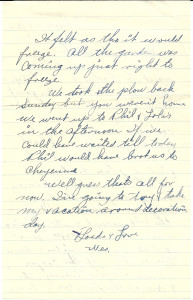 It felt as tho it would
freeze. All the garden was
coming up just right to
freeze.
We took the plow back
Sunday but you weren't home
we went up to Phil & Lola's
in the afternoon if we
could have waited till today
Phil would have brot us to
Cheyenne
Well guess thats all for
now. I'm going to try & take
my vacation around decoration
day.
Loads of Love
Wes.